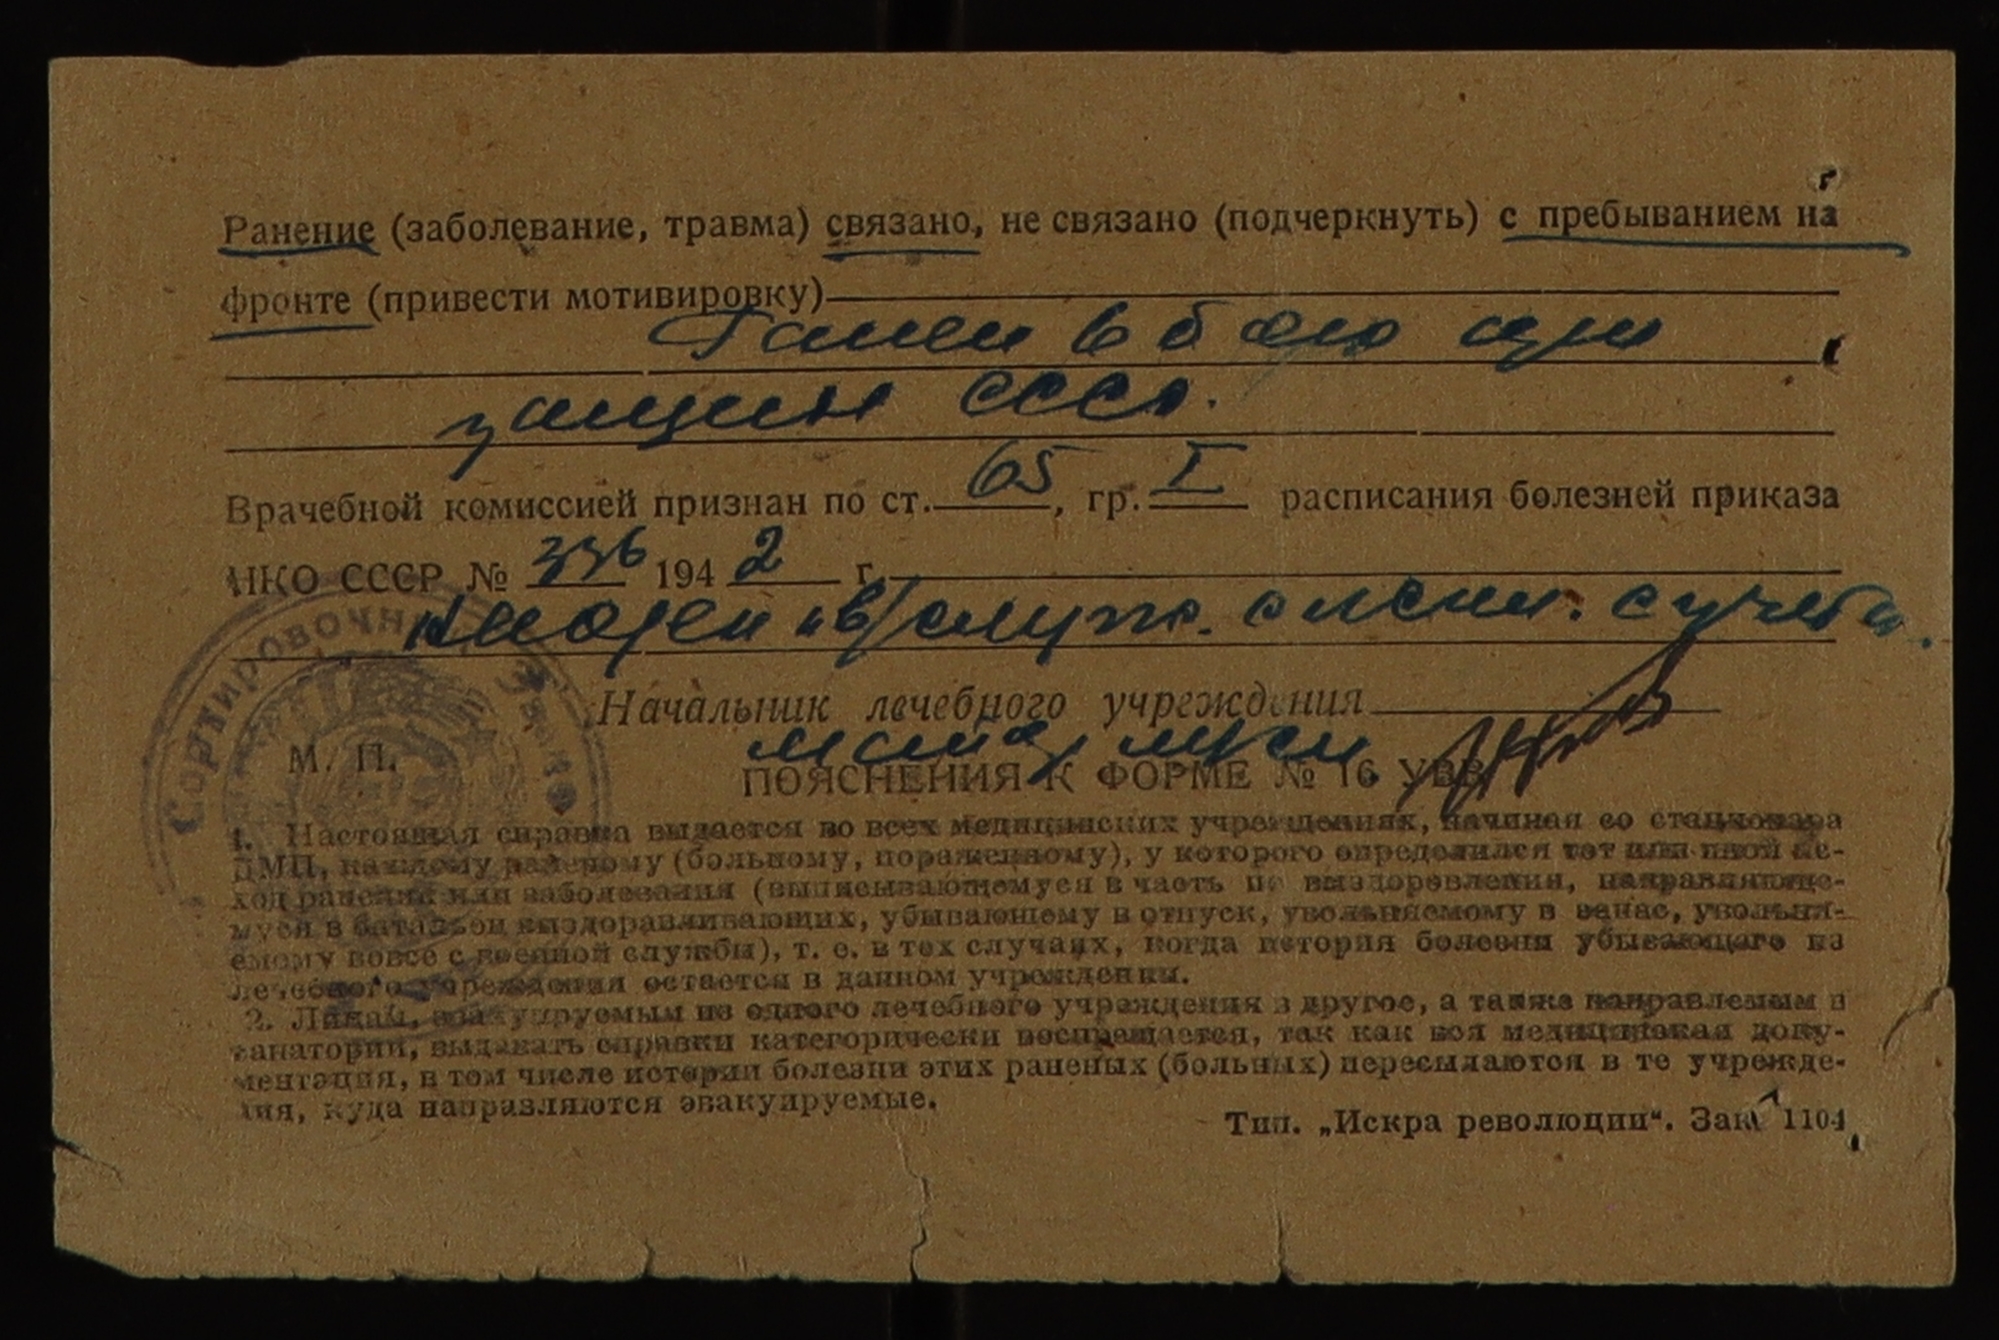 Ранение (заболевание, травма) связано, не связано (подчеркнуть) с пребыванием на
фронте (привести мотивировку)
Ранен в бою при
защите СССР.
Врачебной комиссией признан по ст. 65, гр. I расписания болезней приказа
НКО СССР № 336 1942 г.
к в/служ. с исключ. с учета.
Начальник лечебного учреждения
М. П.
майор м/сл.
ПОЯСНЕНИЯ К ФОРМЕ № 16 УВВ
1. Настоящая справка выдается во всех медицинских учреждениях, начиная со стационара
ДМП, каждому раненому (больному, пораженному), у которого определился тот или иной ис-
ход ранения или заболевания (выписывающемуся в часть по выздоровлении, направляюще-
муся в батальон выздоравливающих, убывающему в отпуск, увольняемому в запас, увольня-
емому вовсе с военной службы), т. е. в тех случаях, когда история болезни убывающего из
лечебного учреждения остается в данном учреждении.
2. Лицам, эвакуируемым из одного лечебного учреждения в другое, а также направленным в
санатории, выдавать справки категорически воспрещается, так как вся медицинская доку-
ментация, в том числе истории болезни этих раненых (больных) пересылаются в те учрежде-
ния, куда направляются эвакуируемые.
Тип. „Искра революции“. Зак. 1104
Сортировочный Эвако